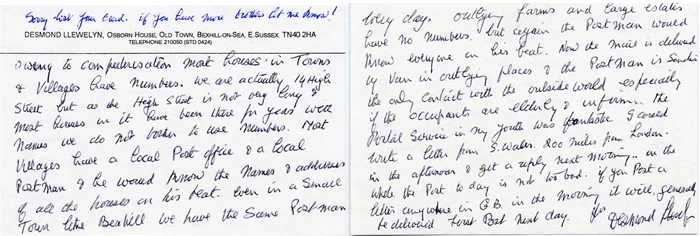 Sorry lost your card. if you have more bother let me know!
DESMOND LLEWELYN, OSBORN HOUSE, OLD TOWN, BEXHILL-ON-SEA, E.SUSSEX. TN40 2HA
TELEPHONE 210050 (STD 0424)
Owing to computerisation most houses in Towns
& Villages have numbers. We are actually 14 High
Street but as the High Street is not very long &
most houses in it have been there for years with
Names we do not bother to use numbers. Most
Villages have a Local Post office & a Local
Postman & he would know the Names & addresses
of all the houses on his beat. Even in a Small
Town like Bexhill we have the Same Postman
every day. Outlying farms and large estates
have no numbers. but again the Postman would
Know everyone on his beat. Now the mail is delivered
by Van in outlying places & the Postman is Sometimes
the only Contact with the outside world especially
if the occupants are elderly & infirm. The
Postal Service in my Youth was fantastic I could
write a letter from S. Wales 200 miles from London.
in the afternoon & get a reply next morning.. on the
whole the Post to day is not too bad. if you Post a
letter anywhere in G.B. in the morning it will, generally
be delivered First Post next day.
Desmond